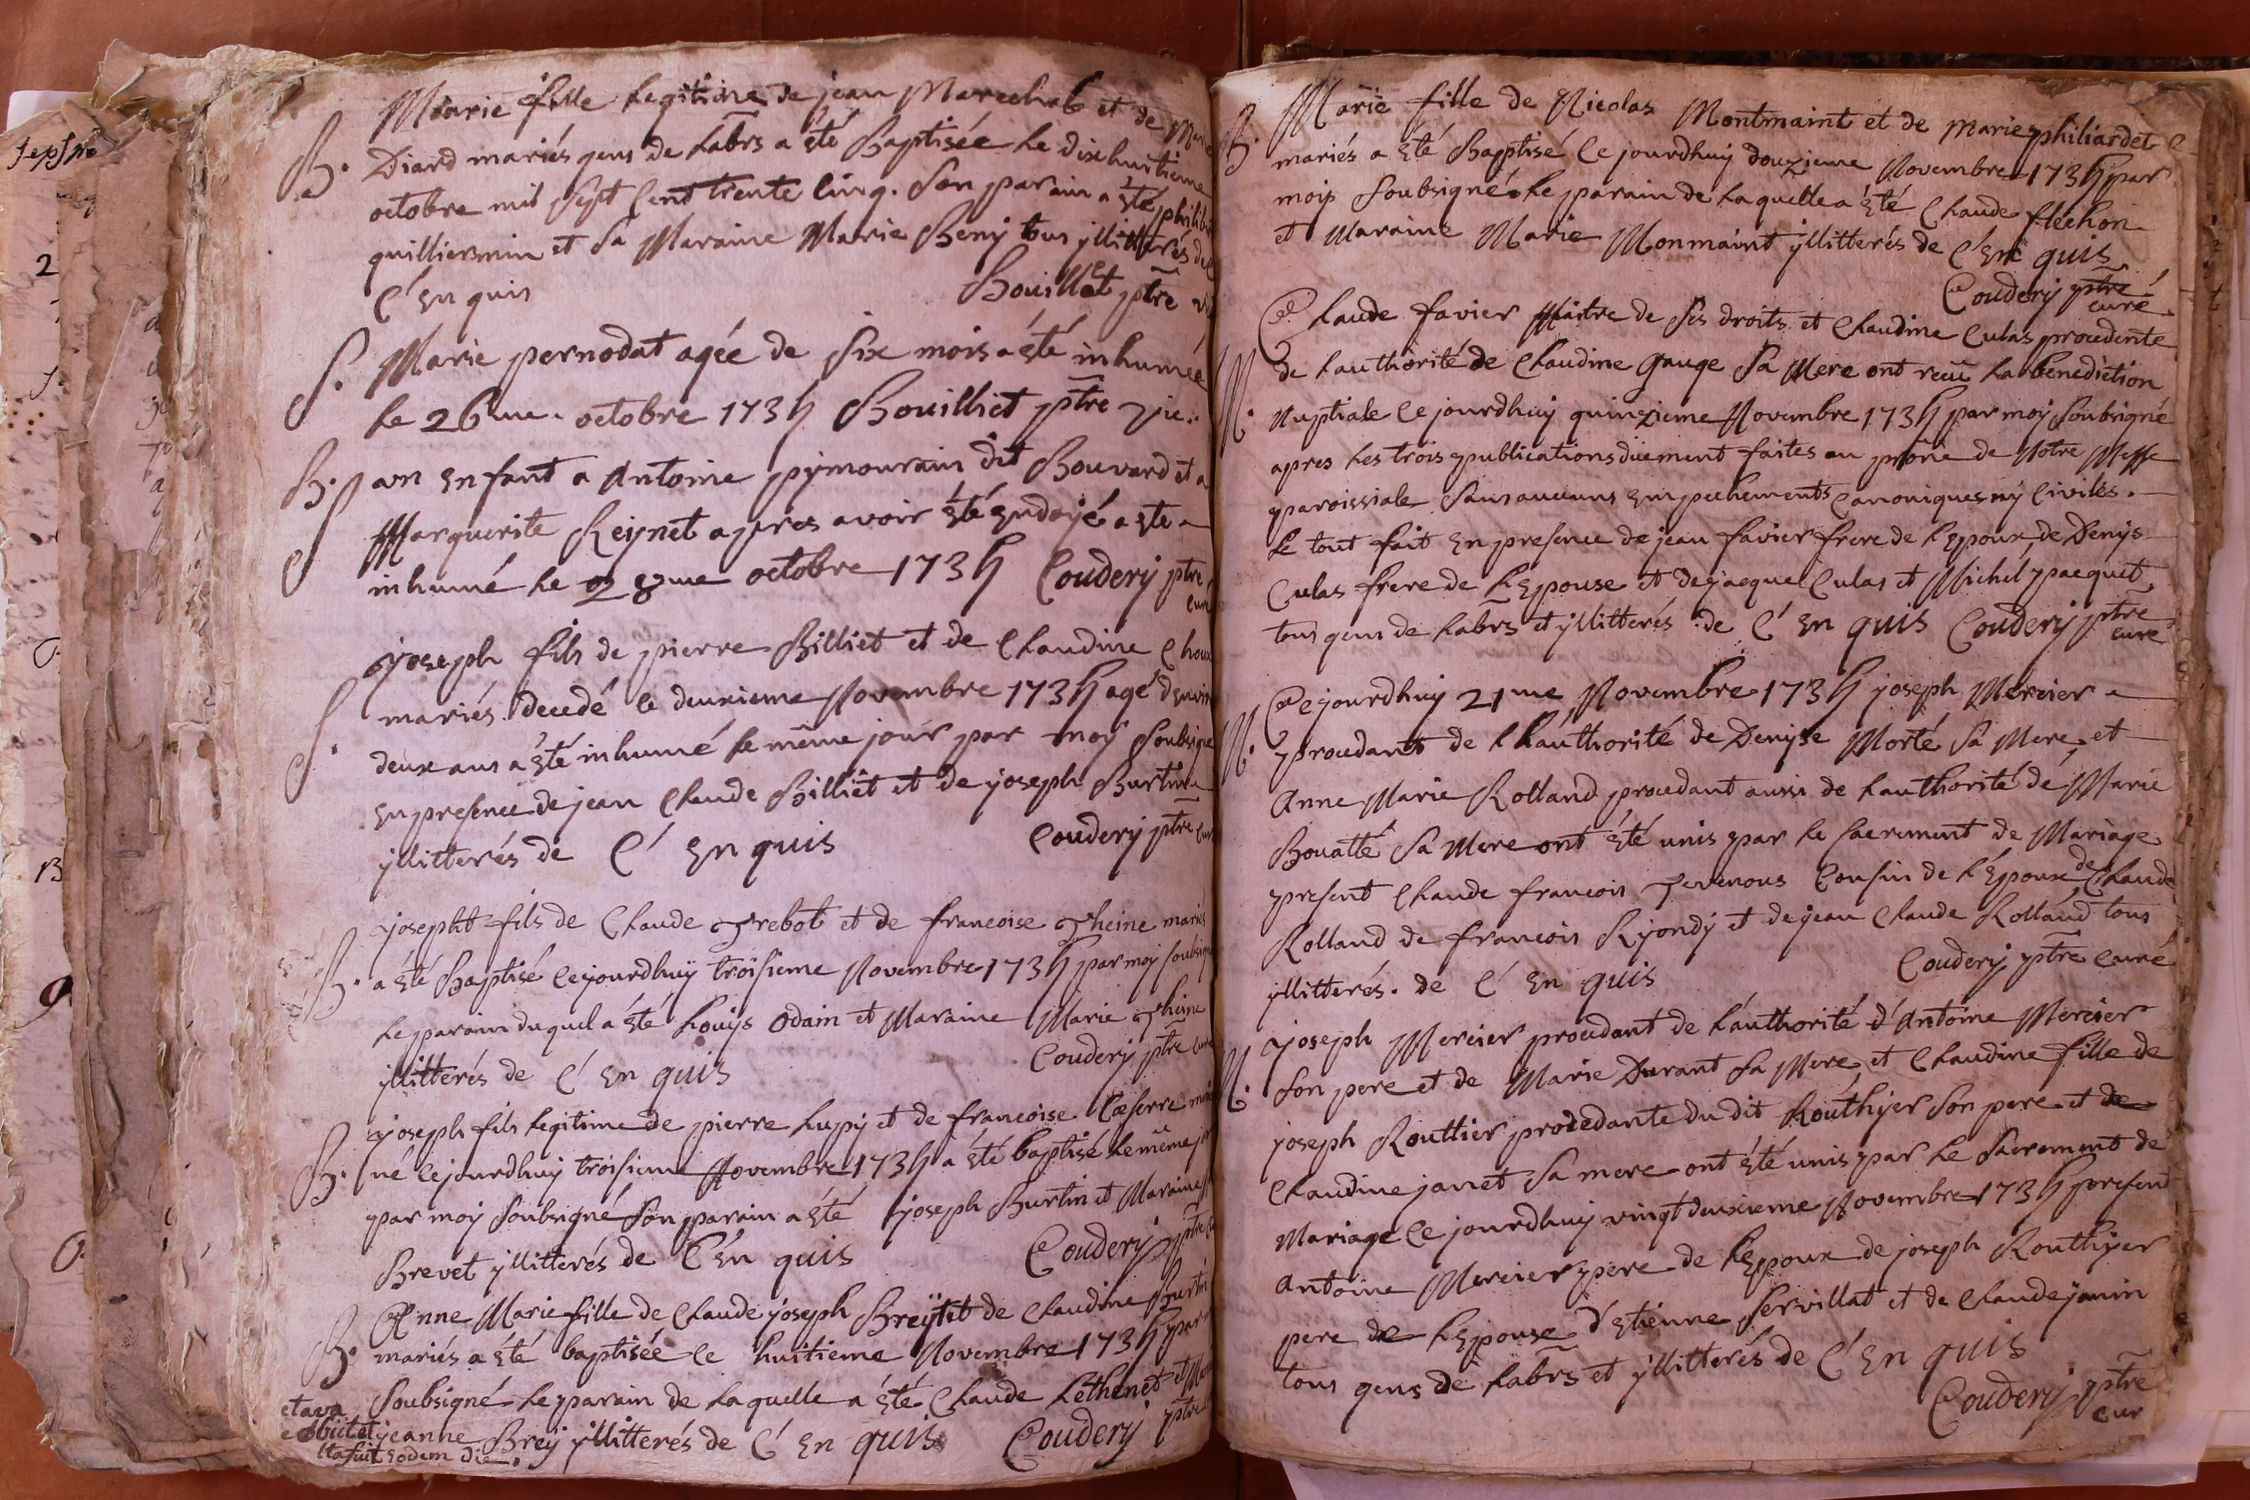 B. Marie fille legitime de jean Marechal et de Marie
Diard mariés gens de labrs a été Baptisée le dixhuitieme
octobre mil sept Cent trente Cinq. Son parain a été philib
guilliermin et sa Maraine Marie Beny tous yllitterés de
C' En quis Bouilliet ptre vic
S. Marie pernodat agée de Six mois a été inhumée
le 26me. octobre 1735 Bouilliet ptre vic.
B. S un Enfant a Antoine pymourain dit Bouvard et a
Marguerite Reynet apres avoir été Endoyé a este
inhumé le 28me octobre 1735 Coudery ptre
curé
S. joseph fils de pierre Billiet et de Claudine Choux
mariés decedé le deuxieme Novembre 1735 agé denvir
deux ans a été inhumé le même jour par moy Soubsigné
En presence de jean Claude Billiet et de joseph Burtin
yllitterés de C' En quis Coudery ptre cur
B. josepht fils de Claude Trebot et de francoise Theine mariés
a été Baptisé Ce jourdhuy troisieme Novembre 1735 par moy soubsigné
le parain duquel a été Louys Odain et Maraine Marie Theine
yllitterés de C' En quis Coudery ptre curé
B. joseph fils legitime de pierre Lupy et de francoise Caeserre
né Ce jourdhuy troisieme Novembre 1735 a été baptisé le même jor
par moy Soubsigné Son parain a été joseph Burtin et Maraine
Brevet yllitterés de C' En quis Coudery ptre
B. Anne Marie fille de Claude joseph Breÿ et de Claudine Burtin
mariés a été baptisée le huitieme Novembre 1735 par
Soubsigné le parain de laquelle a été Claude Lethenet et
jeanne Brey yllitterés de C' En quis Coudery ptre
obiit et
eodem die.
B. Marie fille de Nicolas Montmaint et de Marie philiardet
mariés a été Baptisé Ce jourdhuy douzieme Novembre 1735 par
moy Soubsigné le parain de laquelle a été Claude flechon
et Maraine Marie Monmaint yllitterés de C' En quis
Coudery ptre
curé
M. Claude favier Maitre de Ses droits et Claudine Culas procedente
de lauthorité de Claudine gauge Sa Mere ont recu la benediction
Nuptiale Ce jourdhuy quinzieme Novembre 1735 par moy Soubsigné
apres les trois publications düement faites au prône de Notre Messe
paroissiale Sans aucuns Empechements Canoniques ny Civiles.
le tout fait En presence de jean favier frere de lEpoux, de Denys
Culas frere de lEpouse et de jacque Culas et Michel pacquet
tous gens de labrs et yllitterés de C' En quis Coudery ptre
curé
M. Ce jourdhuy 21me Novembre 1735 joseph Mercier
procedant de lauthorité de Denyse Morté Sa Mere, et
Anne Marie Rolland procedant aussi de lauthorité de Marie
Bouatté Sa Mere ont été unis par le Sacrement de Mariage
present Claude francois Tevenous Cousin de l'Epoux de Claude
Rolland de francois Ryondy et de jean Claude Rolland tous
yllitterés. de C' En quis Coudery ptre curé
M. joseph Mercier procedant de lauthorité d'Antoine Mercier
Son pere et de Marie Durant Sa Mere, et Claudine fille de
joseph Routtier procedante du dit Routhyer Son pere et de
Claudine janet Sa mere ont été unis par le Sacrement de
Mariage Ce jourdhuy vingt deuxieme Novembre 1735 present
Antoine Mercier pere de lEpoux de joseph Routhyer
pere de lEpouse d'Etienne Servillat et de Claude janin
tous gens de labrs et yllitterés de C' En quis
Coudery ptre
cur